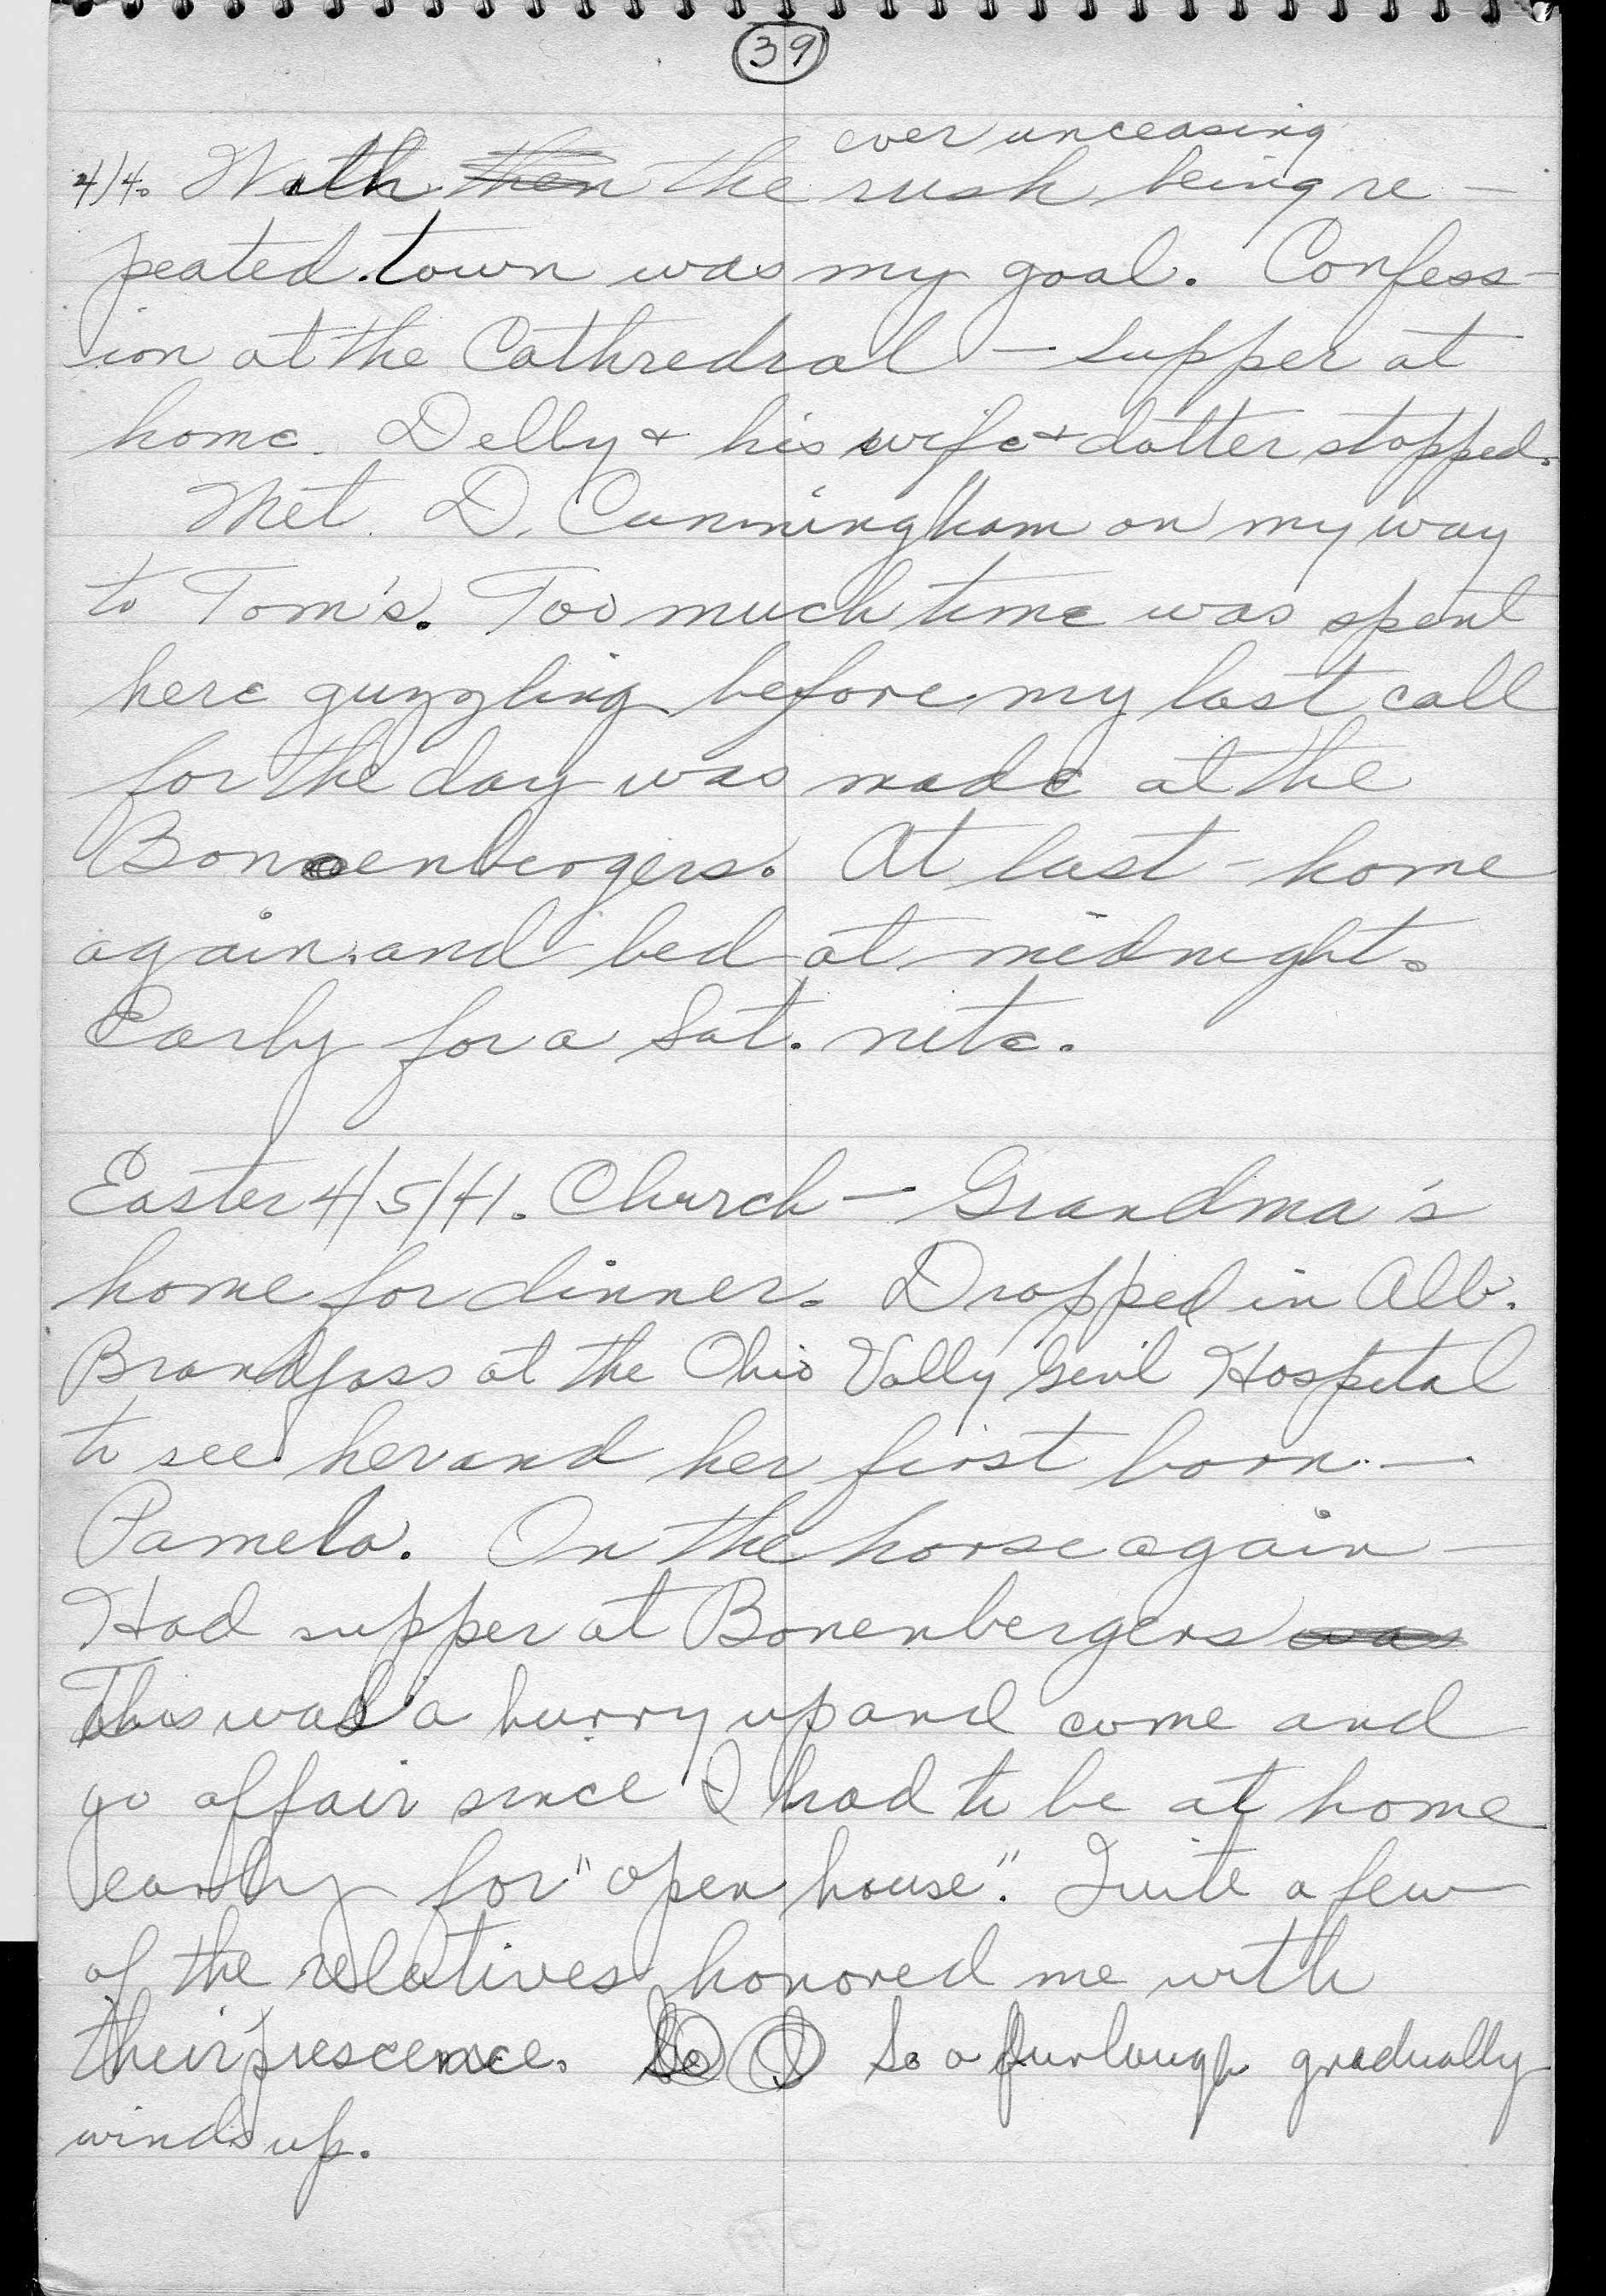 39
ever unceasing
4/4. With then the rush being re-
peated town was my goal. Confess-
ion at the Cathredral — supper at
home. Delby & his wife & dotter stopped.
Met D. Cunningham on my way
to Tom's. Too much time was spent
here guzzling before my last call
for the day was made at the
Bonnenbergers. At last - home
again and bed at midnight.
Early for a Sat. nite.
Easter 4/5/41. Church — Grandma's
home for dinner. Dropped in Alb.
Brandfass at the Ohio Vally Gen'l Hospital
to see her and her first born —
Pamela. On the horse again —
Had supper at Bonenbergers was
This was a hurry up and come and
go affair since I had to be at home
early for "open house". Quite a few
of the relatives honored me with
their prescence. So I So a furlough gradually
winds up.